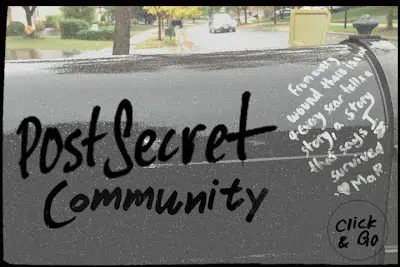 PostSecret
Community
From every
wound there
every scar tells a
story. a story
that says I
survived
♥ MaR.
Click
& Go